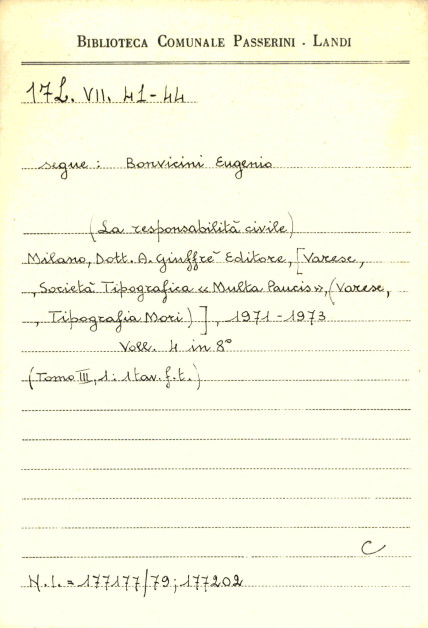 BIBLIOTECA COMUNALE PASSERINI - LANDI
17L. VII. 41-44
segue: Bonvicini Eugenio
(La responsabilità civile)
Milano, Dott. A. Giuffrè Editore, [Varese,
, Società Tipografica « Multa Paucis », (Varese,
, Tipografia Mori)], 1971-1973
Voll. 4 in 8°
(Tomo III, 1: 1 tav. f. t.)
C
N.I. = 177177/79; 177202